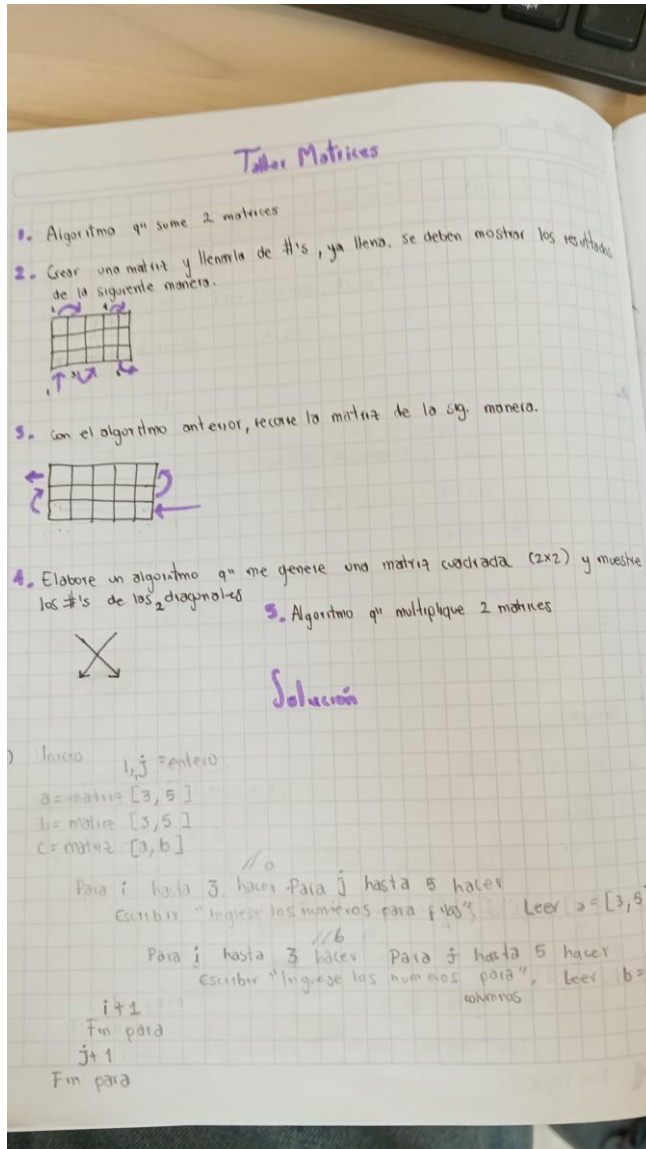 Taller Matrices
1. Algoritmo q" sume 2 matrices
2. Crear una matriz y llenarla de #'s, ya llena. se deben mostrar los resultados
de la siguiente manera.
3. Con el algoritmo anterior, recorre la matriz de la sig. manera.
4. Elabore un algoritmo q" me genere una matriz cuadrada (2x2) y muestre
los #'s de las 2 diagonales
5. Algoritmo q" multiplique 2 matrices
Solución
) Inicio i, j = entero
a = matriz [3, 5]
b = matriz [3, 5]
c = matriz [a, b]
//a
Para i hasta 3 hacer Para j hasta 5 hacer
Escribir "Ingrese los números para filas", Leer a = [3, 5
//b
Para i hasta 3 hacer Para j hasta 5 hacer
Escribir "Ingrese los numeros para", Leer b =
columnas
i+1
Fin para
j+1
Fin para